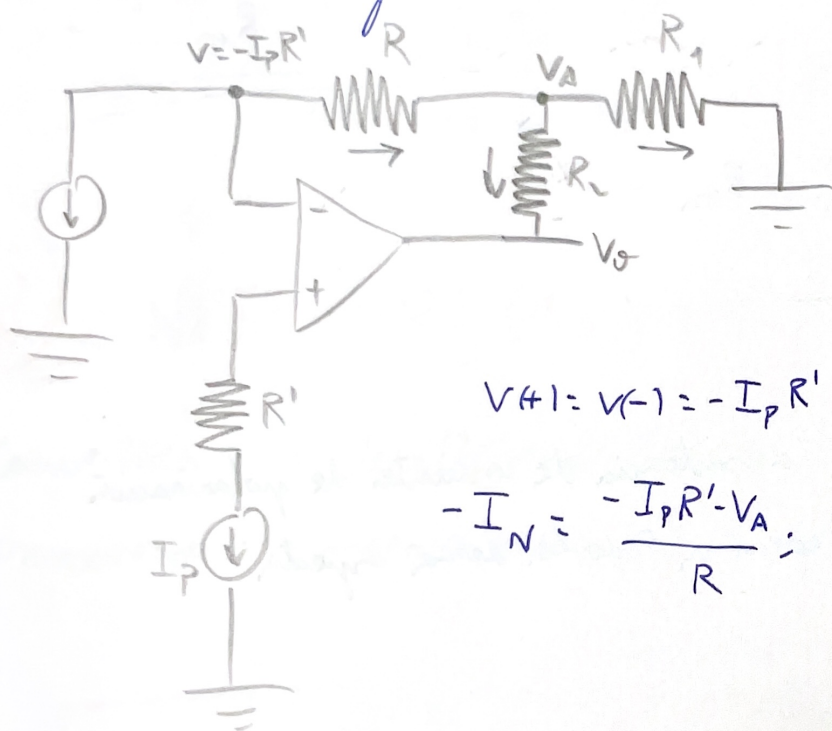 V=-IpR'
R
VA
R1
R2
-
+
Vo
R'
Ip
V(+)=V(-)=-IpR'
-IN = -IpR'-VA
R
;